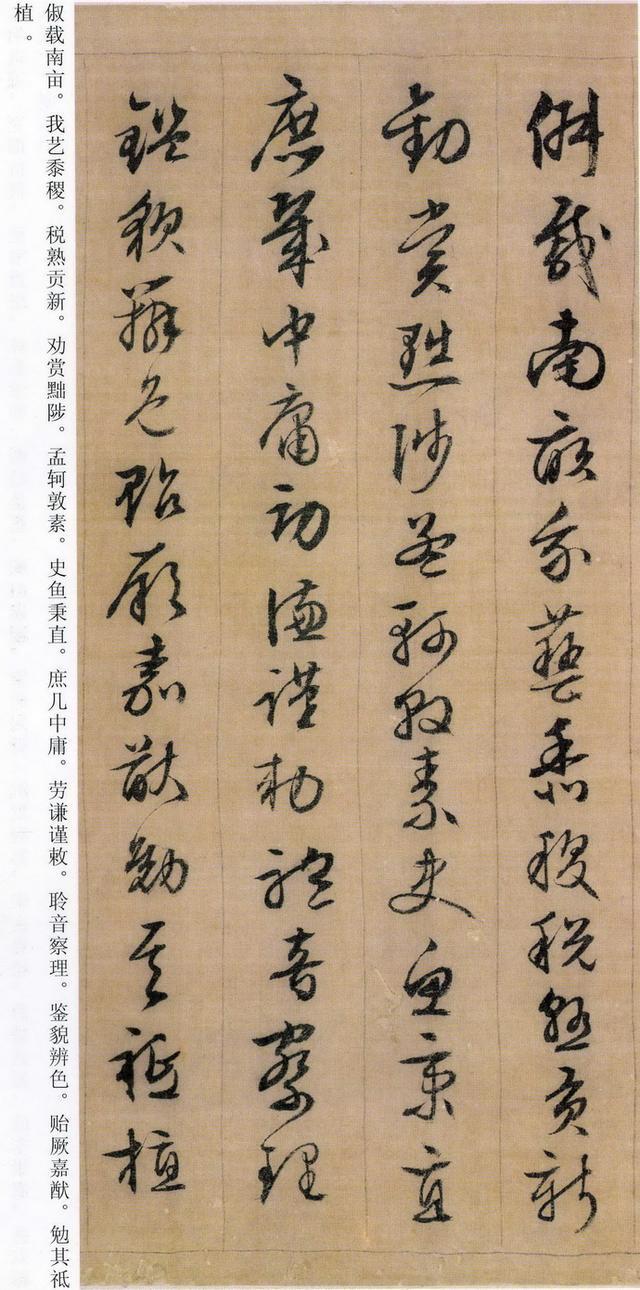 俶載南畝我藝黍稷稅熟貢新
勸賞黜陟孟軻敦素史魚秉直
庶幾中庸勞謙謹勅聆音察理
鑑貌辨色貽厥嘉猷勉其祗植
俶载南亩。我艺黍稷。税熟贡新。劝赏黜陟。孟轲敦素。史鱼秉直。庶几中庸。劳谦谨敕。聆音察理。鉴貌辨色。贻厥嘉猷。勉其祗
植。